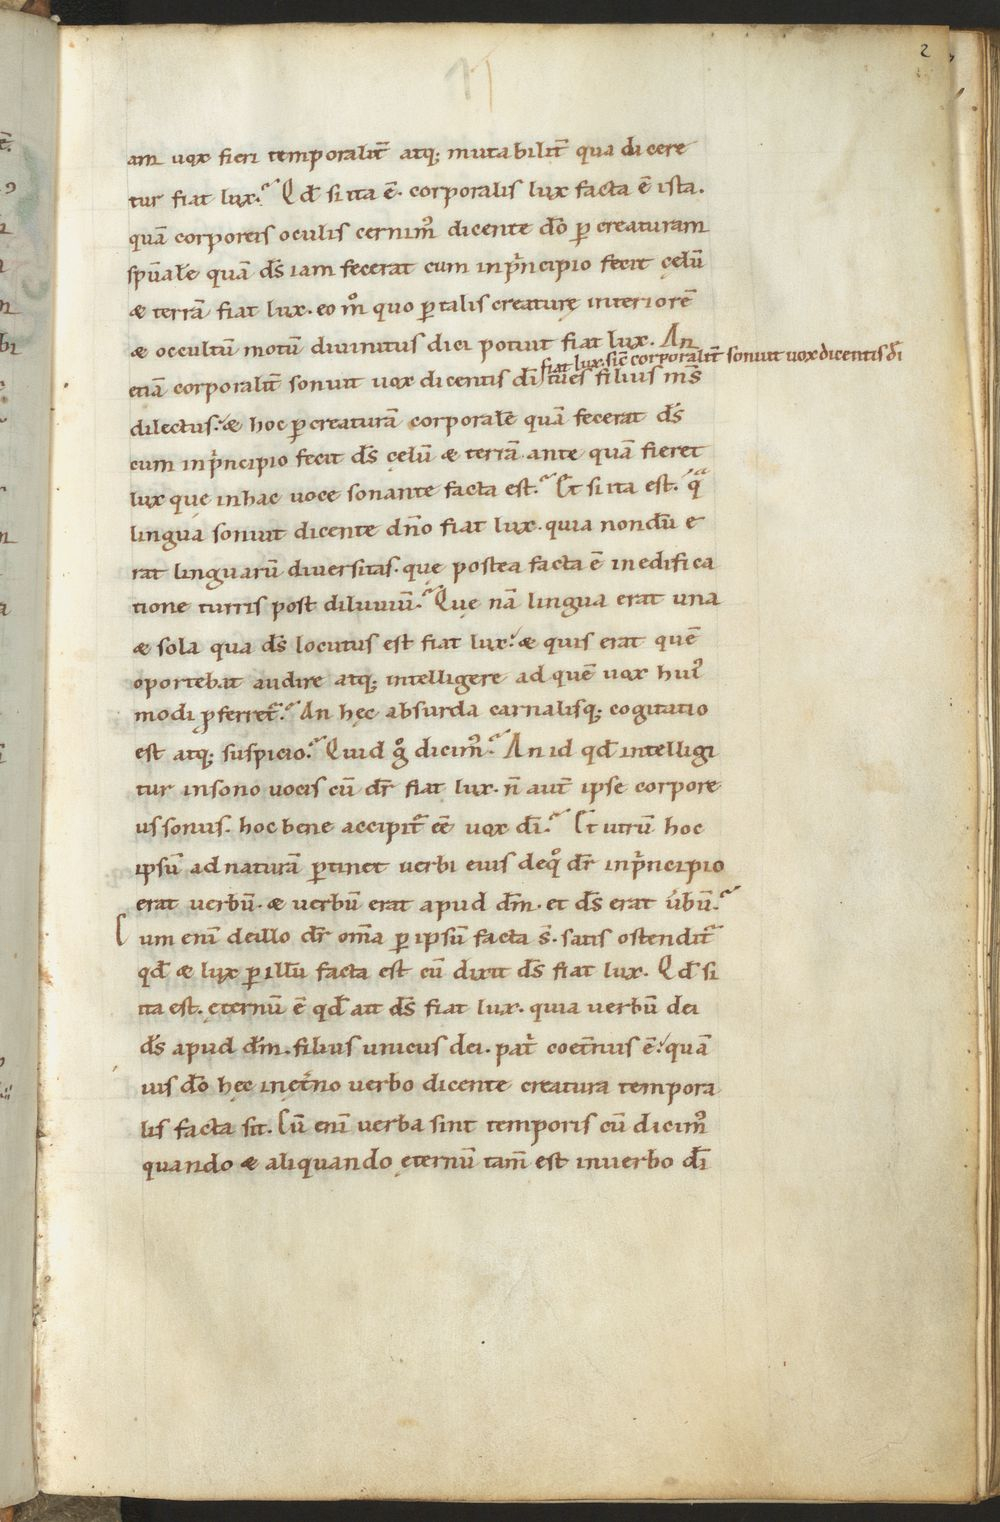 2
am uox fieri temporalit̄ atq; mutabilit̄ qua dicere
tur fiat lux. Qđ si ita ē. corporalis lux facta ē ista.
quā corporeis oculis cernim᷒ dicente dō ꝑ creaturam
spūalē quā d̄s iam fecerat cum in pͥncipio fecit cęlū
& terrā fiat lux. eo m̊ quo ꝑ talis creaturę interiorē
& occultū motū diuinitus dici potuit fiat lux. An
fiat lux. sic̄ corporalit̄ sonuit uox dicentis dī
etiā corporalit̄ sonuit uox dicentis dī tu es filius m̄s
dilectus. & hoc ꝑ creaturā corporalē quā fecerat d̄s
cum in pͥncipio fecit d̄s cęlū & terrā ante quā fieret
lux quę in hac uoce sonante facta est. Et si ita est. qͣ
lingua sonuit dicente dn̄o fiat lux. quia nondū e
rat linguarū diuersitas. quę postea facta ē in edifica
tione turris post diluuiū. Quę nā lingua erat una
& sola qua d̄s locutus est fiat lux. & quis erat quē
oportebat audire atq; intelligere ad quē uox hui᷒
modi ꝓferret᷑. An hęc absurda carnalisq; cogitatio
est atq; suspicio. Quid g̊ dicim᷒. An id qđ intelligi
tur in sono uocis cū dr̄ fiat lux. n̄ aut̄ ipse corpore
us sonus. hoc bene accipit᷑ eē uox dī. Et utrū hoc
ipsū ad naturā ꝑtinet uerbi eius de q̊ dr̄ in pͥncipio
erat uerbū. & uerbū erat apud dm̄. et d̄s erat u̇bū.
Cum enī de illo dr̄ om̄a ꝑ ipsū facta s̄. satis ostendit᷑
qđ & lux ꝑ illū facta est cū dixit d̄s fiat lux. Qđ si
ita est. ęternū ē qđ ait d̄s fiat lux. quia uerbū dei
d̄s apud dm̄. filius unicus dei. pat͛ coet̄nus ē. quā
uis dō hęc in ęt͛no uerbo dicente creatura tempora
lis facta sit. Cū enī uerba sint temporis cū dicim᷒
quando & aliquando ęternū tam̄ est in uerbo dī